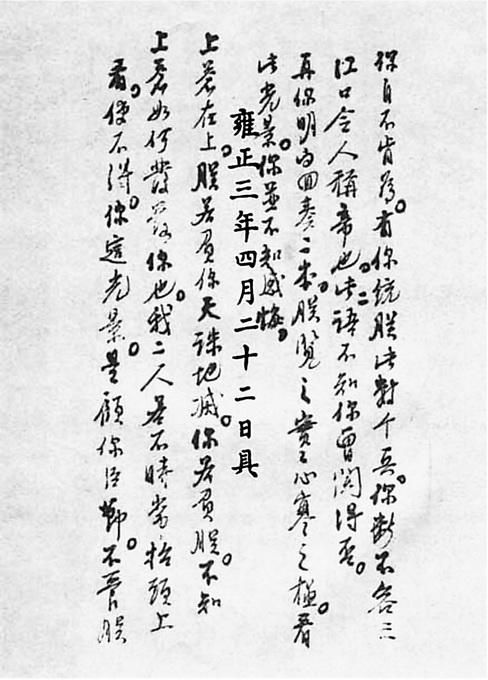 你自不肯為。有你統朕此數千兵。你斷不容三
江口令人稱帝也。此二語不知你曾聞得否。
再你明白回奏二本。朕覽之實々心寒之極。看
此光景。你並不知感悔。
雍正三年四月二十二日具
上蒼在上。朕若負你天誅地滅。你若負朕。不知
上蒼如何發落你也。我二人若不時常抬頭上
看。使不得。你這光景。是顧你臣節。不管朕